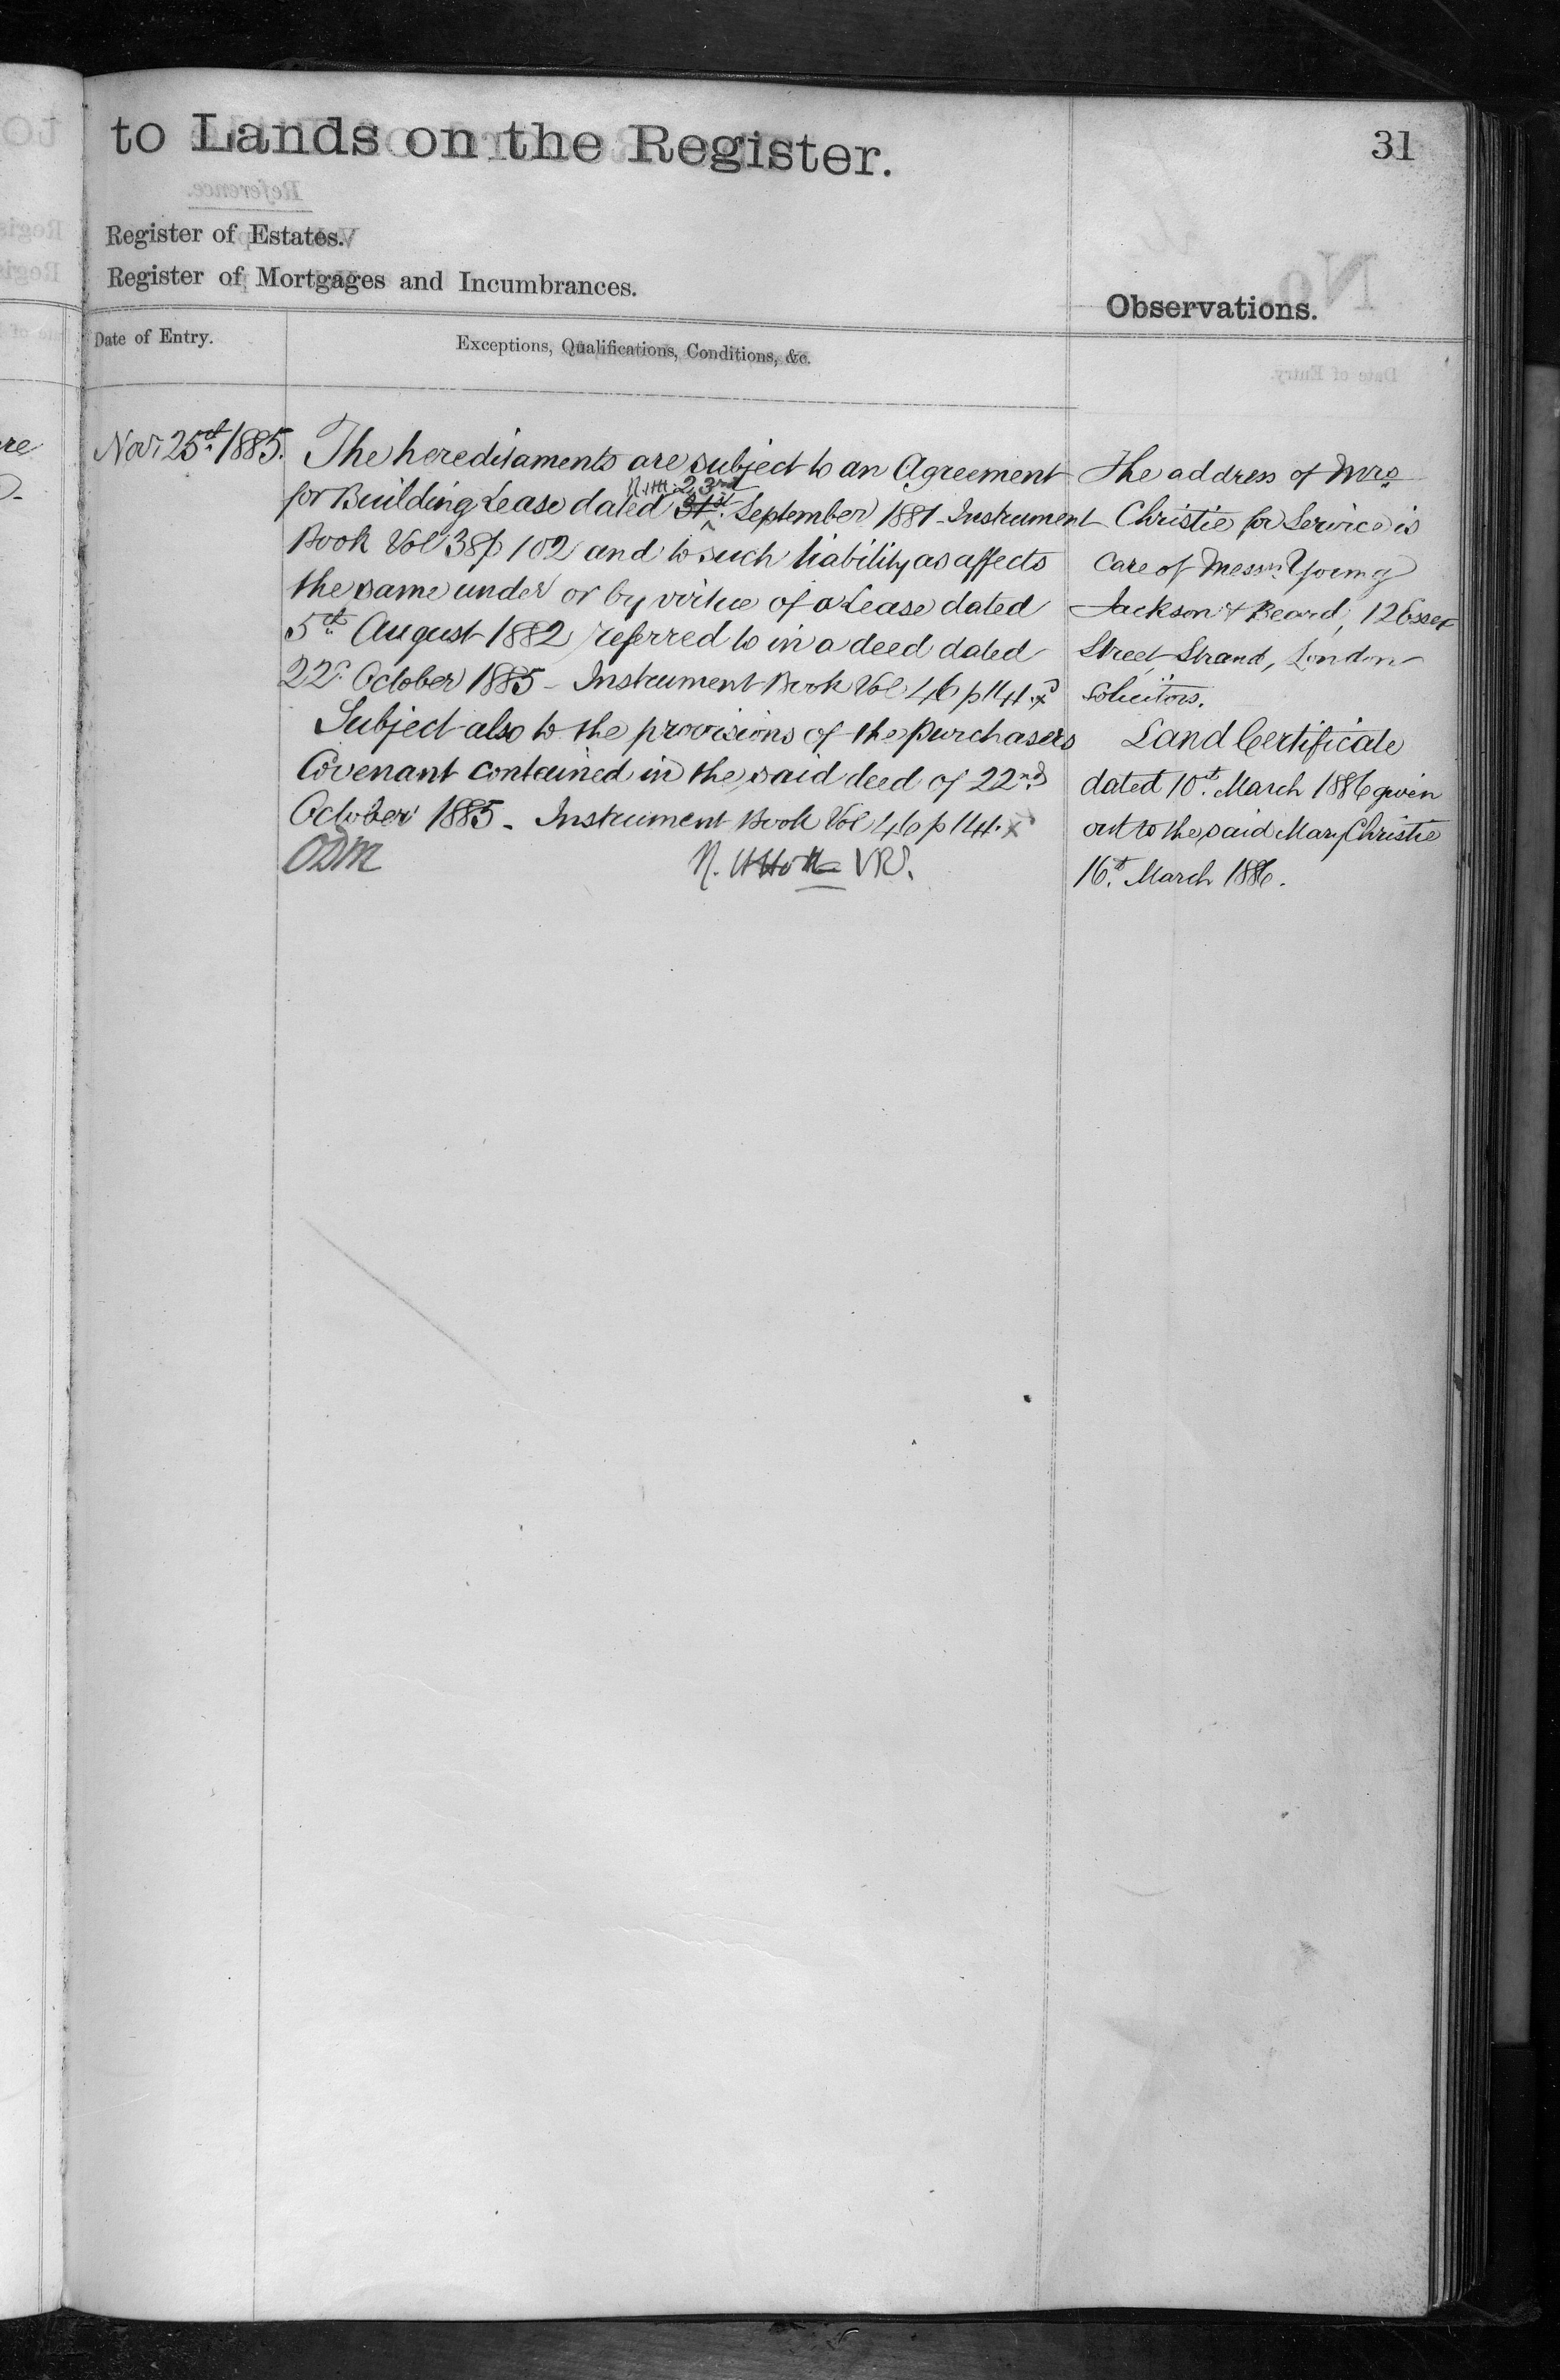 to Lands on the Register.
31
Register of Estates.
Register of Mortgages and Incumbrances.
Observations.
Date of Entry.
Exceptions, Qualifications, Conditions, &c.
Nov. 25th 1885.
The hereditaments are subject to an Agreement
23rd
for Building Lease dated 21st September 1881 Instrument
Book Vol 38 p 102 and to such liability as affects
the same under or by virtue of a Lease dated
5th August 1882 referred to in a deed dated
22d October 1885 - Instrument Book Vol 46 p 114.
Subject also to the provisions of the purchasers
Covenant contained in the said deed of 22nd
October 1885 - Instrument Book Vol 46 p 114.
ODM
VR.
The address of Mrs
Christie for Service is
care of Messrs Young
Jackson & Beard, 12 Essex
Street Strand, London
Solicitors.
Land Certificate
dated 10th March 1886 given
out to the said Mary Christie
16th March 1886.